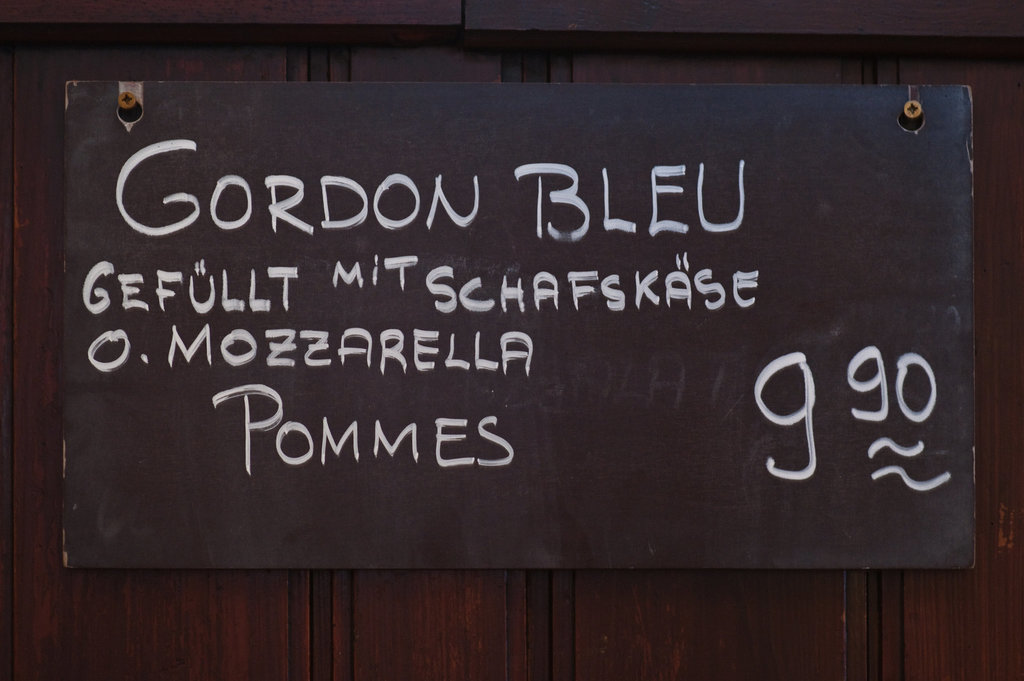 GORDON BLEU
GEFÜLLT MIT SCHAFSKÄSE
O. MOZZARELLA
POMMES
9 90